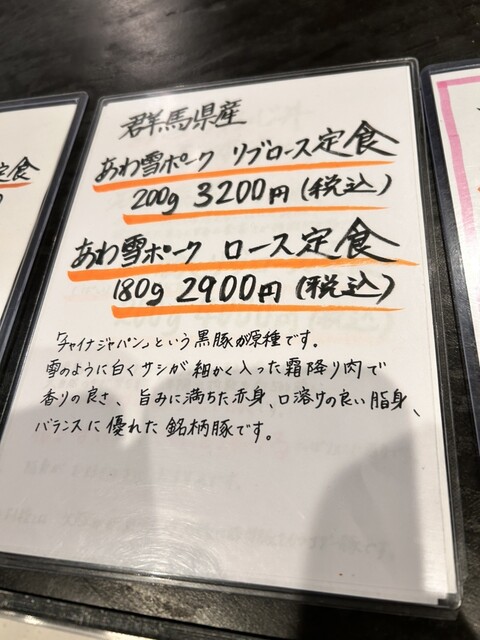 群馬県産
あわ雪ポーク リブロース定食
200g 3200円(税込)
あわ雪ポーク ロース定食
180g 2900円(税込)
「チャイナジャパン」という黒豚が原種です。
雪のように白くサシが細かく入った霜降り肉で
香りの良さ、旨みに満ちた赤身、口溶けの良い脂身、
バランスに優れた銘柄豚です。
定食